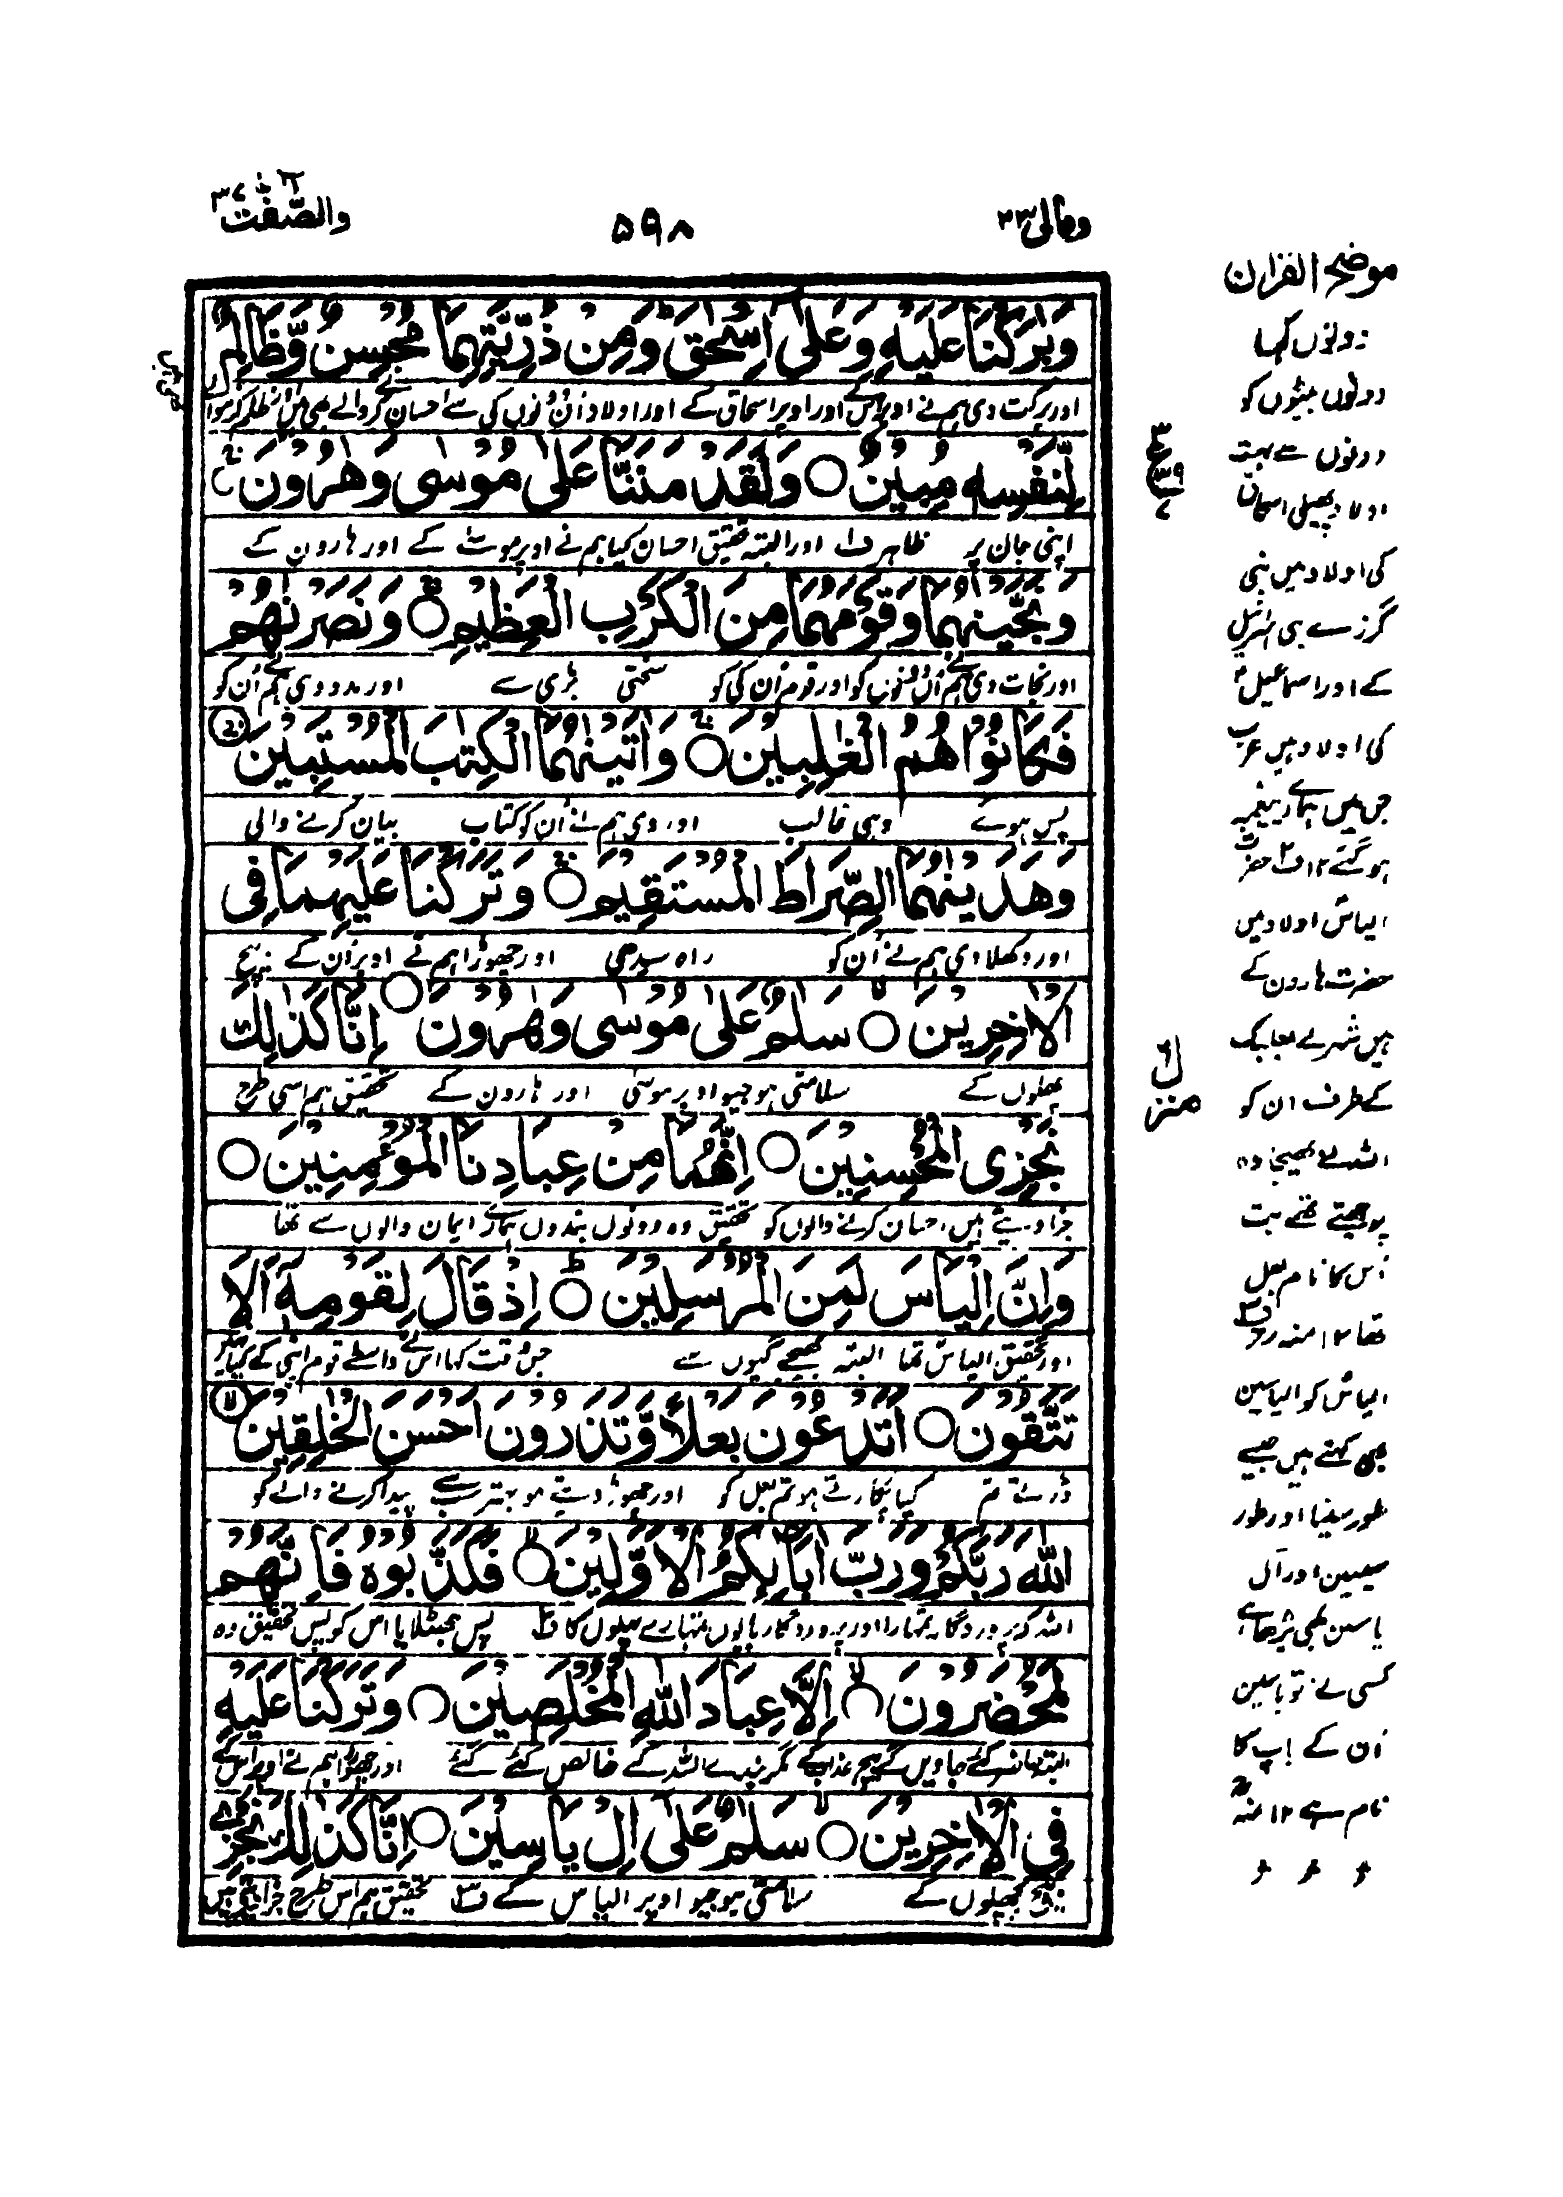 ومالی ۲۳
۵۹۸
والصّٰفّٰت ۳۷
وَبٰرَكْنَا عَلَيْهِ وَعَلٰۤى اِسْحٰقَ ؕ وَمِنْ ذُرِّيَّتِهِمَا مُحْسِنٌ وَّظَالِمٌ
اور برکت دی ہم نے اوپر اس کے اور اوپر اسحاق کے اور اولاد ان دونوں کی سے احسان کرنے والے بھی ہیں اور ظلم کرنے والے
لِّنَفْسِهٖ مُبِيْنٌ ○ وَلَقَدْ مَنَنَّا عَلٰى مُوْسٰى وَهٰرُوْنَ ۚ
اپنی جان پر ظاہر ف۱ اور البتہ تحقیق احسان کیا ہم نے اوپر موسیٰ کے اور ہارون کے
وَنَجَّيْنٰهُمَا وَقَوْمَهُمَا مِنَ الْكَرْبِ الْعَظِيْمِ ۚ○ وَنَصَرْنٰهُمْ
اور نجات دی ہم نے ان دونوں کو اور قوم ان کی کو سختی بڑی سے اور مدد دی ہم نے اُن کو
فَكَانُوْا هُمُ الْغٰلِبِيْنَ ۚ○ وَاٰتَيْنٰهُمَا الْكِتٰبَ الْمُسْتَبِيْنَ ۚ
پس ہوئے وہی غالب اور دی ہم نے اُن کو کتاب بیان کرنے والی
وَهَدَيْنٰهُمَا الصِّرَاطَ الْمُسْتَقِيْمَ ۚ○ وَتَرَكْنَا عَلَيْهِمَا فِى
اور دکھلادی ہم نے اُن کو راہ سیدھی اور چھوڑا ہم نے اوپر اُن کے بیچ
الْاٰخِرِيْنَ ۙ○ سَلٰمٌ عَلٰى مُوْسٰى وَهٰرُوْنَ ○ اِنَّا كَذٰلِكَ
پچھلوں کے سلامتی ہوجیو اوپر موسیٰ اور ہارون کے تحقیق ہم اسی طرح
نَجْزِى الْمُحْسِنِيْنَ ○ اِنَّهُمَا مِنْ عِبَادِنَا الْمُؤْمِنِيْنَ ○
جزا دیتے ہیں احسان کرنے والوں کو تحقیق وہ دونوں بندوں ہمارے ایمان والوں سے تھا
وَاِنَّ اِلْيَاسَ لَمِنَ الْمُرْسَلِيْنَ ؕ○ اِذْ قَالَ لِقَوْمِهٖۤ اَلَا
اور تحقیق الیاس تھا البتہ بھیجے گیوں سے جس وقت کہا اس نے واسطے قوم اپنی کے کیا نہیں
تَتَّقُوْنَ ○ اَتَدْعُوْنَ بَعْلًا وَّتَذَرُوْنَ اَحْسَنَ الْخٰلِقِيْنَ ۙ
ڈرتے تم کیا پکارتے ہو تم بعل کو اور چھوڑ دیتے ہو بہتر سب پیدا کرنے والے کو
اللّٰهَ رَبَّكُمْ وَرَبَّ اٰبَآئِكُمُ الْاَوَّلِيْنَ ۙ○ فَكَذَّبُوْهُ فَاِنَّهُمْ
اللہ کو پروردگار تمہارا اور پروردگار باپوں تمہارے پہلوں کا ف۲ پس جھٹلایا اس کو پس تحقیق وہ
لَمُحْضَرُوْنَ ۙ○ اِلَّا عِبَادَ اللّٰهِ الْمُخْلَصِيْنَ ○ وَتَرَكْنَا عَلَيْهِ
البتہ حاضر کئے جاویں گے بیچ عذاب کے مگر بندے اللہ کے خالص کئے گئے اور چھوڑا ہم نے اوپر اس کے
فِى الْاٰخِرِيْنَ ۙ○ سَلٰمٌ عَلٰۤى اِلْ يَاسِيْنَ ○ اِنَّا كَذٰلِكَ نَجْزِى
بیچ پچھلوں کے سلامتی ہوجیو اوپر الیاس کے ف۳ تحقیق ہم اسی طرح جزا دیتے ہیں
موضح القرآن
دونوں کہا
دونوں بیٹوں کو
دونوں سے بہت
اولاد پھیلی اسحاق
کی اولاد میں نبی
گزرے بنی اسرائیل
کے اور اسماعیل
کی اولاد میں عرب
جن میں ہمارے پیغمبر
ہو گئے ۱۲ ف۲ حضرت
الیاس اولاد میں
حضرت ہارون کے
ہیں شہر بعلبک
کے طرف ان کو
اللہ نے بھیجا وہ
پوجتے تھے بت
اُس کا نام بعل
تھا ۱۲ منہ رح ف۳
الیاس کو الیاسین
بھی کہتے ہیں جیسے
طور سینا اور طور
سینین اور آل
یاسین بھی پڑھا ہے
کسی نے تو یاسین
اُن کے باپ کا
نام ہے ۱۲ منہ
ع
منزل ۶